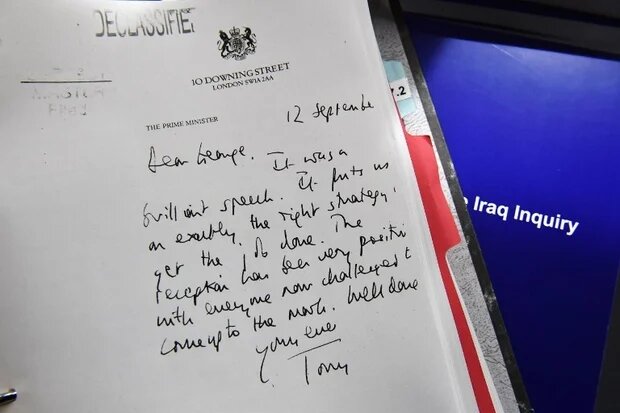 DECLASSIFIED
10 DOWNING STREET
LONDON SW1A 2AA
THE PRIME MINISTER
12 September
Dear George.
It was a
brilliant speech. It puts us
on exactly the right strategy,
get the job done. The
reception has been very positive
with everyone now challenged to
come up to the mark. Well done
Yours ever
Tony
7.2
Iraq Inquiry